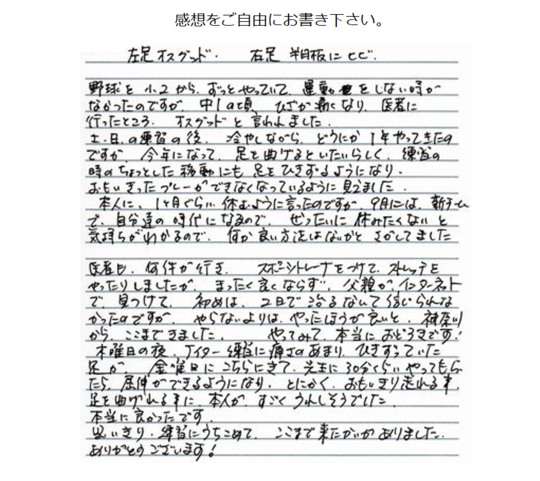 感想をご自由にお書き下さい。
左足オスグッド． 右足 半月板にヒビ．
野球を小2から、ずっとやっていて、運動をしない時が
なかったのですが、中1の頃、ひざが痛くなり、医者に
行ったところ、オスグッドと言われました。
土、日の練習の後、冷やしながら、どうにか1年やってきたの
ですが、今年になって、足を曲げるといたいらしく、練習の
時のちょっとした移動にも足をひきずるようになり、
おもいきったプレーができなくなっているように見えました。
本人に、1ヶ月ぐらい休むように言ったのですが、9月には、新チーム
で、自分達の時代になるので、ぜったいに休みたくないと
気持ちがわかるので、何か良い方法はないかとさがしてました
医者も、何件か行き、スポーツトレーナをつけて、ストレッチを
やったりしましたが、まったく良くならず、父親が、インターネット
で、見つけて、初めは、2日で治るなんて信じられな
かったのですが、やらないよりは、やったほうが良いと、神奈川
から、ここまできました。 やってみて、本当におどろきです!
木曜日の夜、ナイター練習に痛さのあまり、ひきずっていた
足が、金曜日にこちらにきて、先生に30分くらいやってもら
たら、屈伸ができるようになり、とにかく、おもいきり走れる事
足を曲げれる事に、本人が、すごくうれしそうでした。
本当に良かったです。
思いきり、練習にうちこめて、ここまで来たかいがありました。
ありがとうございます!